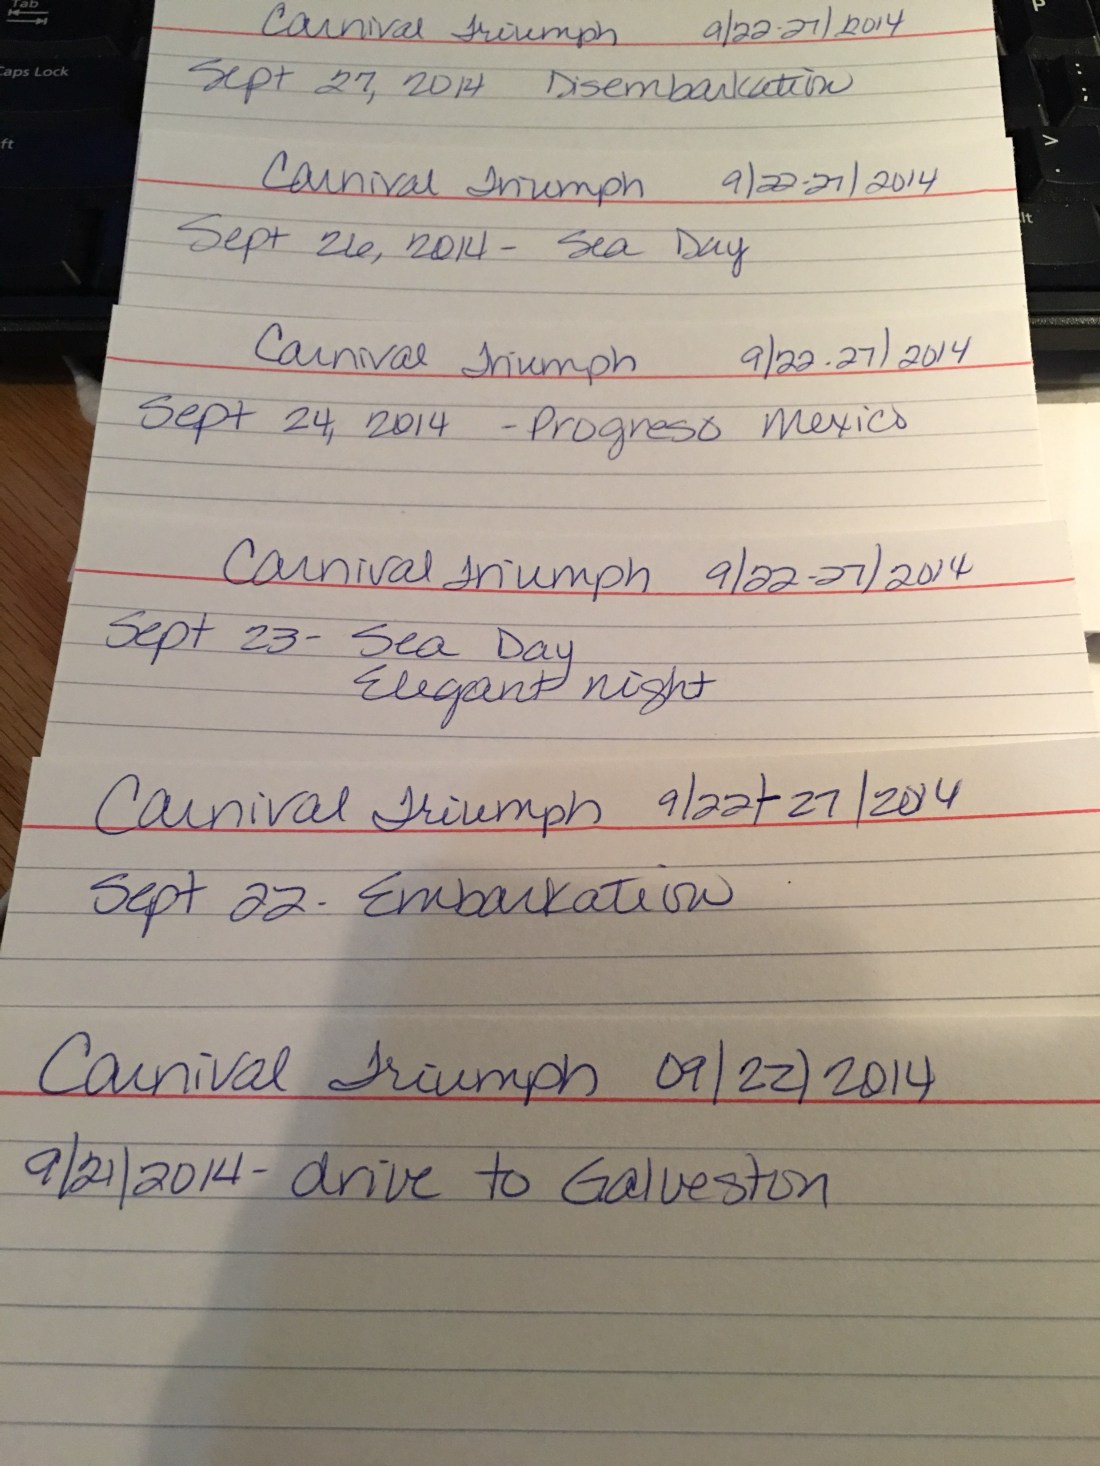 Tab
Caps Lock
ft
P
>
.
lt
Carnival Triumph 9/22-27/2014
Sept 27, 2014 Disembarkation
Carnival Triumph 9/22-27/2014
Sept 26, 2014 - Sea Day
Carnival Triumph 9/22-27/2014
Sept 24, 2014 - Progreso Mexico
Carnival Triumph 9/22-27/2014
Sept 23- Sea Day
Elegant night
Carnival Triumph 9/22-27/2014
Sept 22- Embarkation
Carnival Triumph 09/22/2014
9/21/2014- drive to Galveston